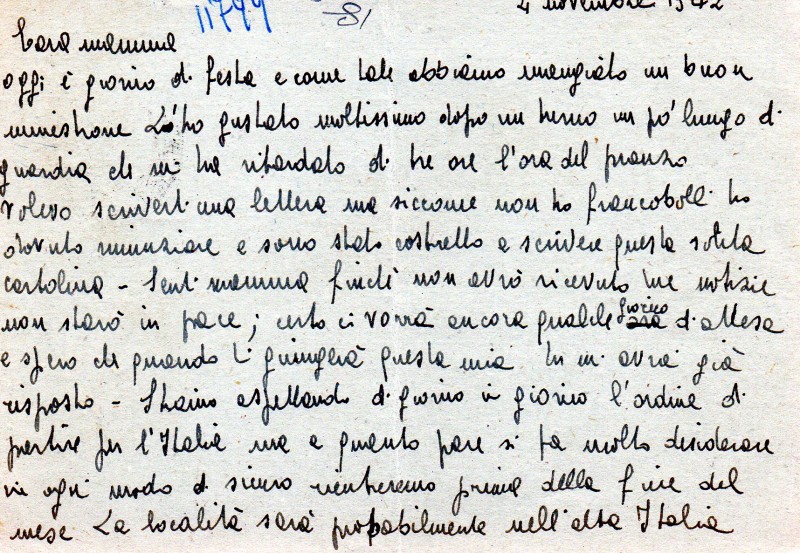 11799
-81
4 novembre 1942
Cara mamma
oggi è giorno di festa e come tale abbiamo mangiato un buon
minestrone L'ho gustato moltissimo dopo un turno un po' lungo di
guardia che mi ha ritardato di tre ore l'ora del pranzo
Volevo scriverti una lettera ma siccome non ho francobolli ho
dovuto rinunziare e sono stato costretto a scrivere questa solita
cartolina - Senti mamma finchè non avrò ricevuto tue notizie
non starò in pace; certo ci vorrà ancora qualche giorno d'attesa
e spero che quando ti giungerà questa mia tu mi avrai già
risposto - Stiamo aspettando di giorno in giorno l'ordine di
partire per l'Italia ma a quanto pare si fa molto desiderare
in ogni modo di sicuro rientreremo prima della fine del
mese La località sarà probabilmente nell'alta Italia